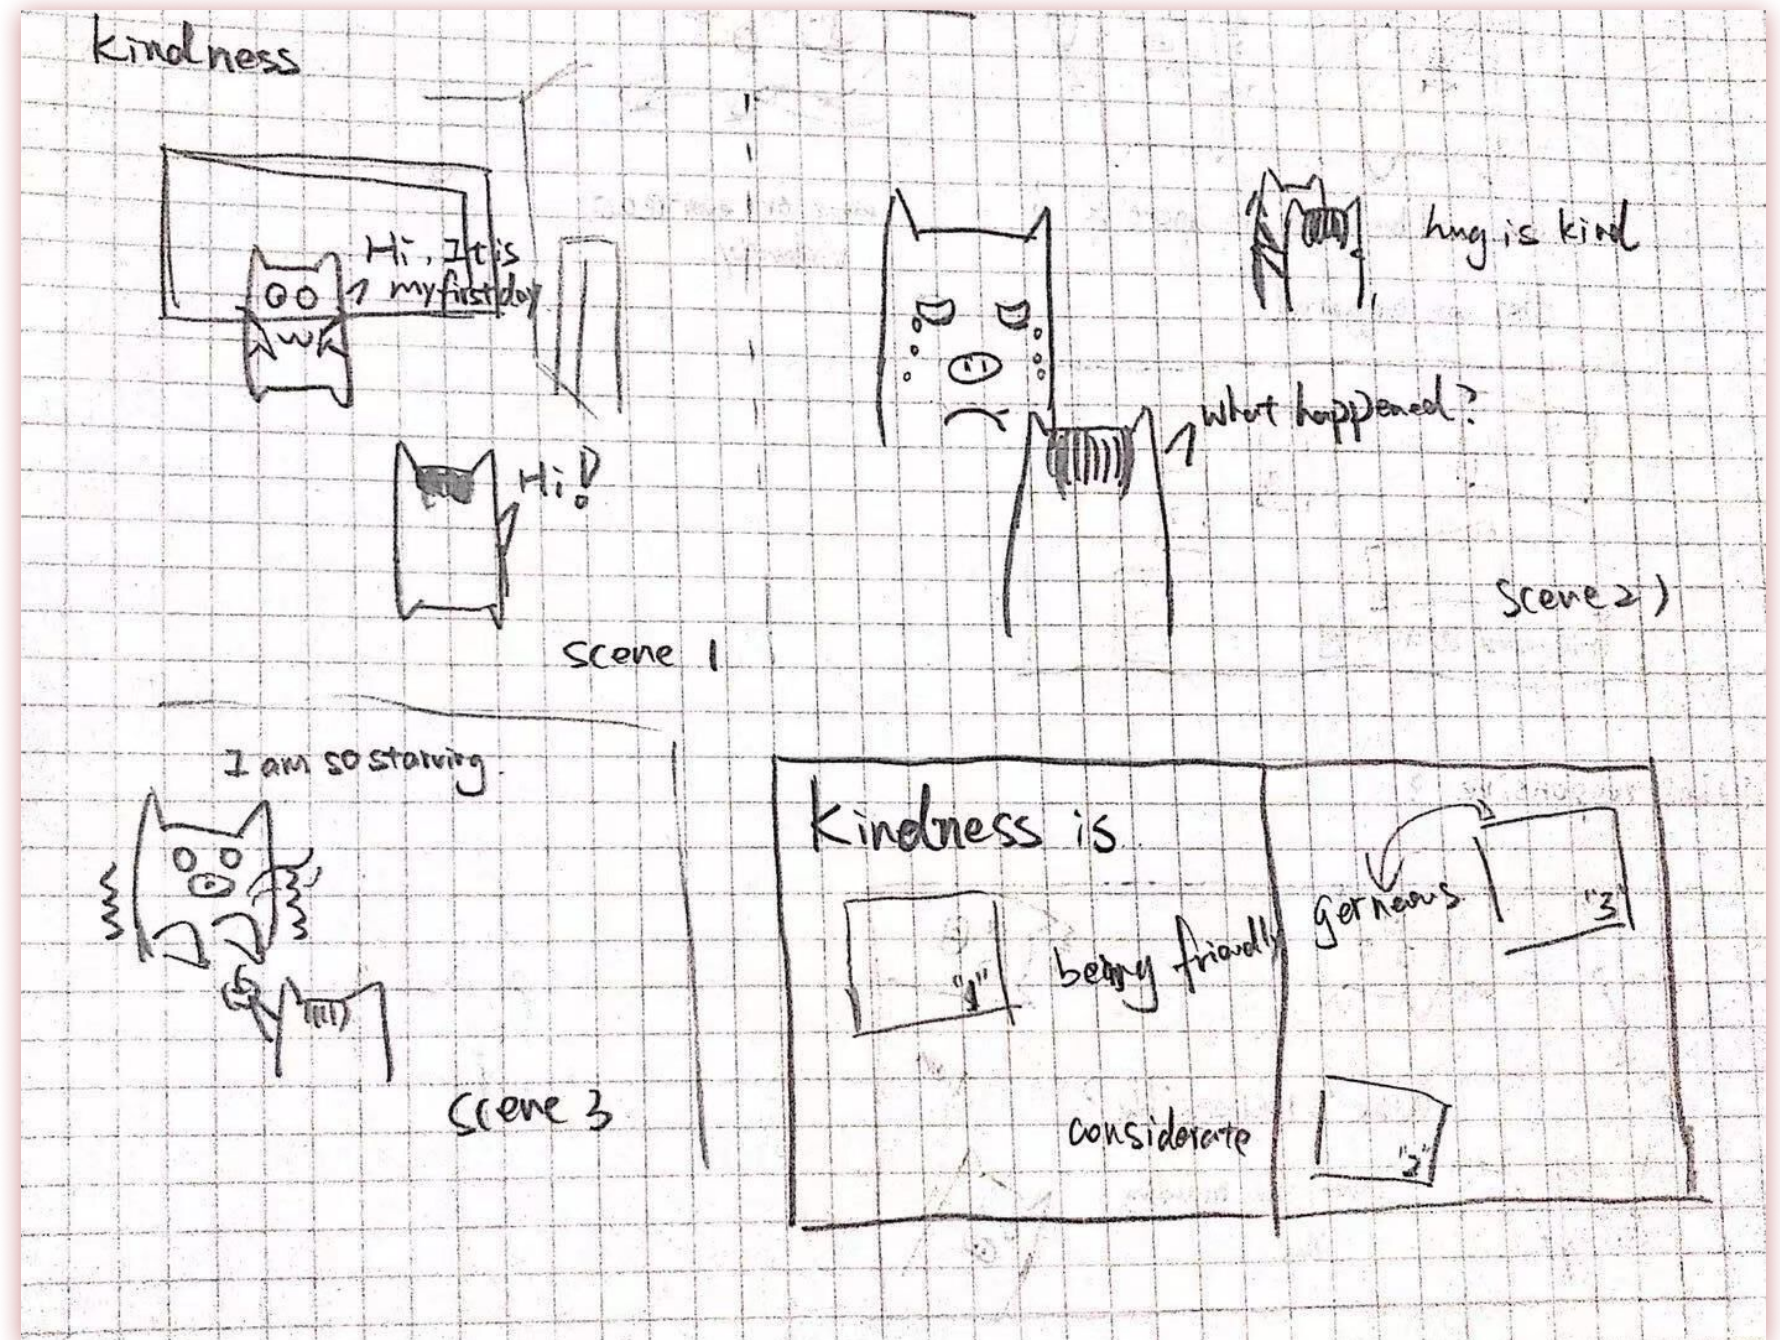 kindness
Hi, It is
my first day
Hi!
scene 1
hug is kind
What happened?
Scene 2)
I am so starving.
scene 3
Kindness is
"1"
being friendly
considerate
gerneous
"3"
"2"